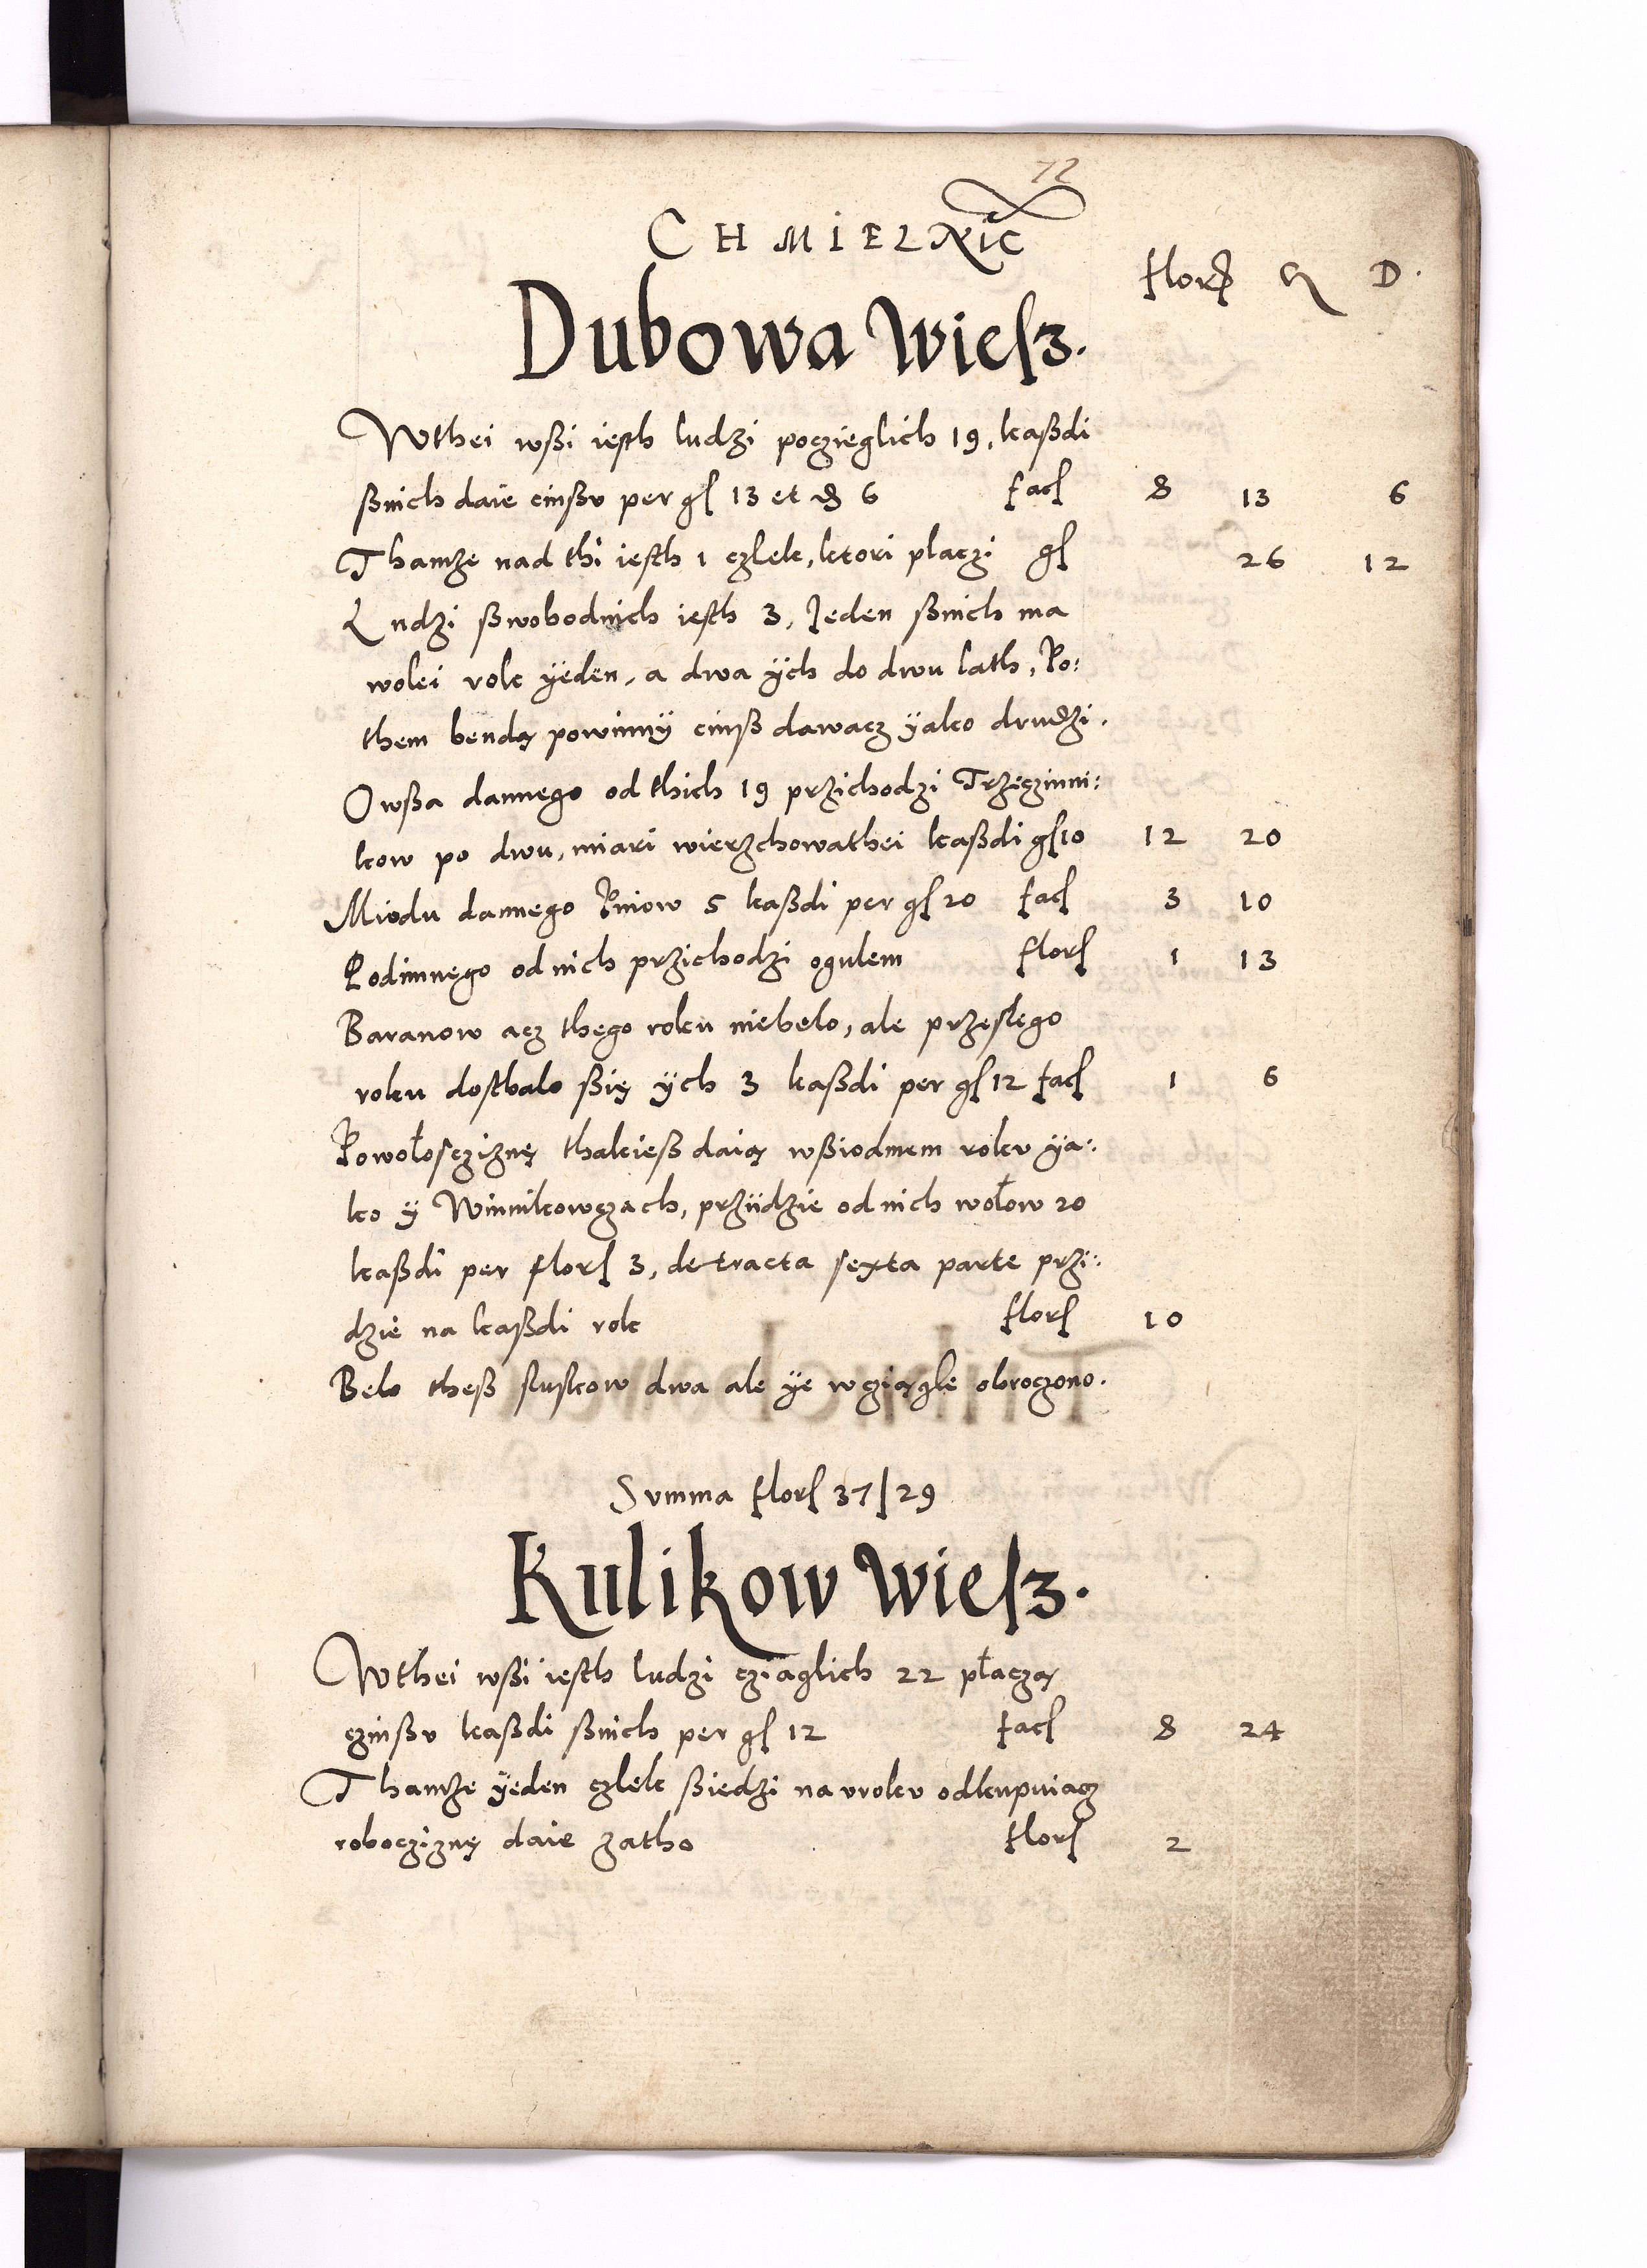 72
CHMIELNIC
flor G D.
Dubowa Wiesz.
Wthei wßi iesth ludzi poczieglich 19, kaßdi
ßnich daie cinßu per gſ 13 et d 6 facſ 8 13 6
Thamże nad thi iesth 1 czlek, ktori placzi gſ 26 12
Ludzi ßwobodnich iesth 3, Jeden ßnich ma
wolei rok ÿeden, a dwa ÿch do dwu lath, Po:
them bendą powinnÿ cinß dawacz ÿako drudzi.
Owßa dannego od thich 19 przichodzi Trzeczinni:
kow po dwu, miari wierzchowathei kaßdi gſ 10 12 20
Miodu dannego Pniow 5 kaßdi per gſ 20 facſ 3 10
Podimnego od nich przichodzi ogulem florſ 1 13
Baranow acz thego roku niebelo, ale przeslego
roku dosthalo ßię ÿch 3 kaßdi per gſ 12 facſ 1 6
Powołoscziznę thakieß daią wßiodmem roku ÿa:
ko ÿ Winnikowczach, prziidzie od nich wołow 20
kaßdi per florſ 3, detracta sexta parte przi:
dzie na kaßdi rok florſ 10
Belo theß sluskow dwa ale ÿe wcziągle obroczono.
Summa florſ 37 | 29
Kulikow Wiesz.
Wthei wßi iesth ludzi cziaglich 22 płaczą
czinßu kaßdi ßnich per gſ 12 facſ 8 24
Thamże ÿeden czlek ßiedzi na vroku odkupuiacz
robocziznę daie zatho florſ 2